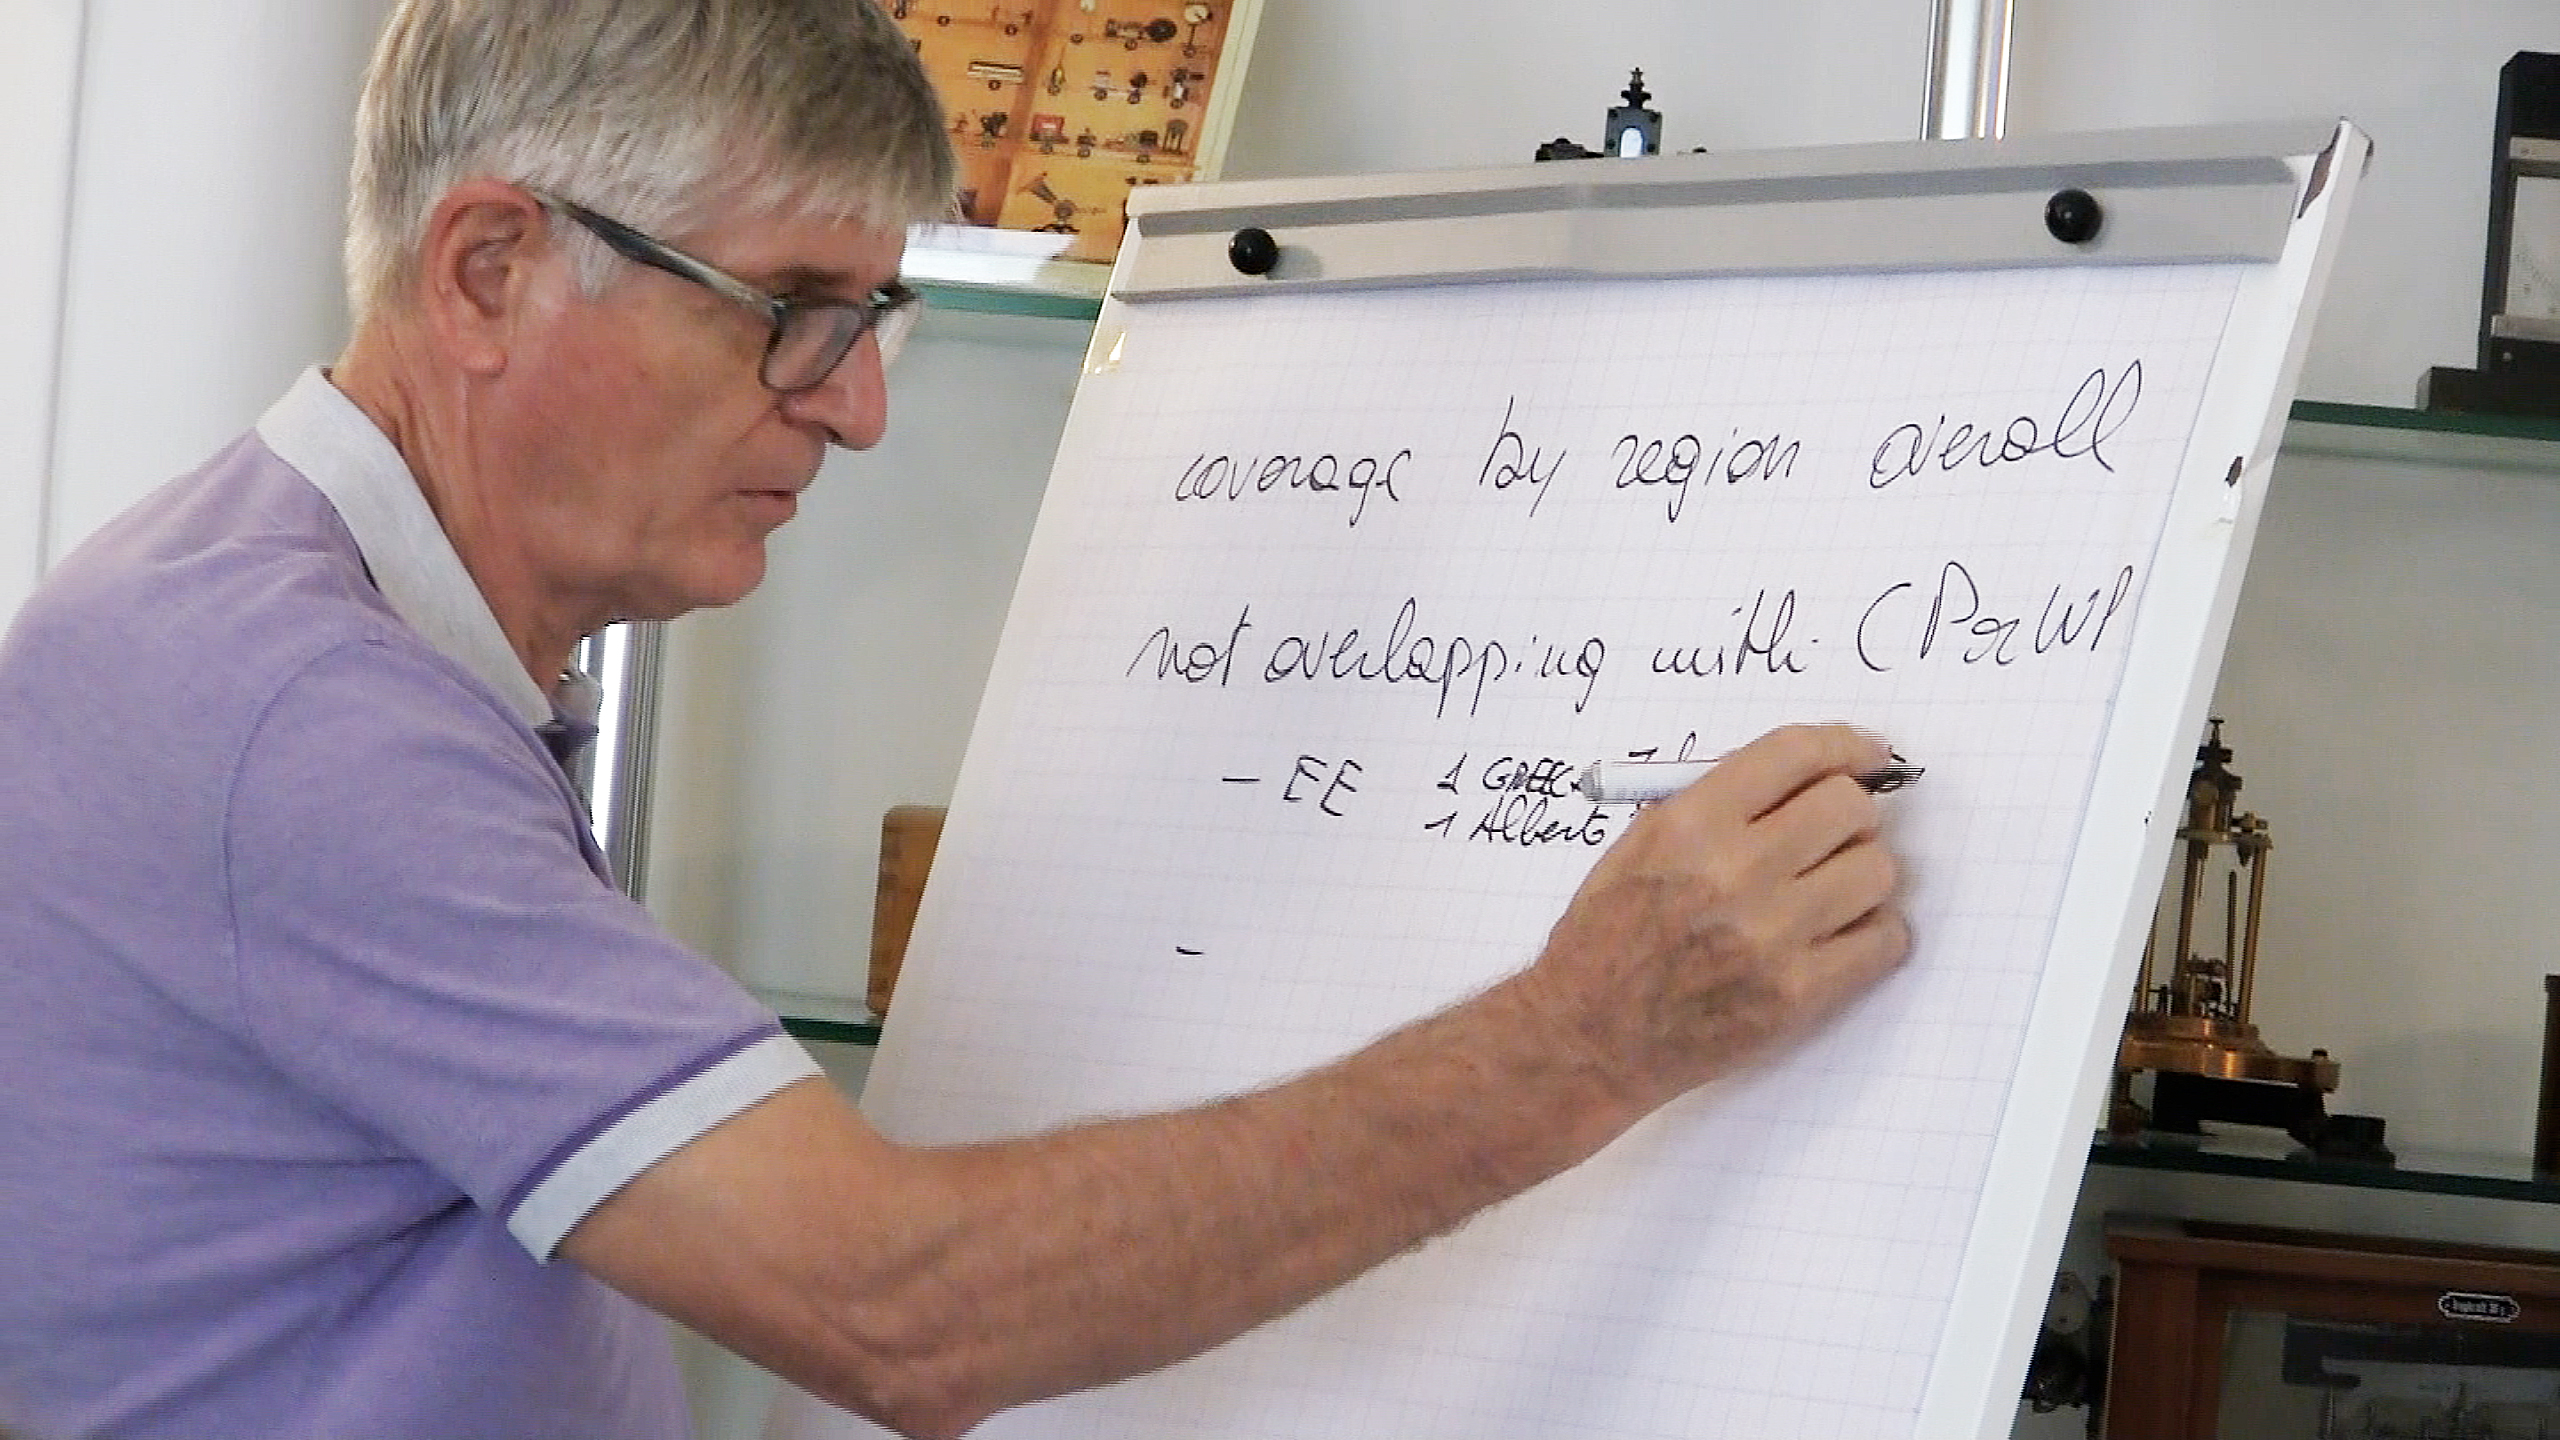 coverage by region overall
not overlapping with (P or WP
- EE 1 GREEC
1 Albert
-